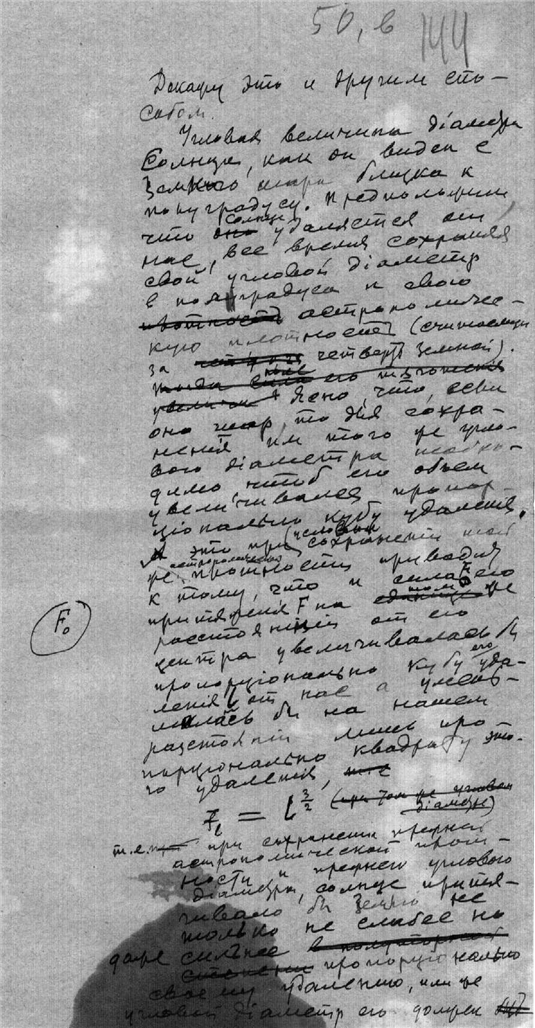 50, в 144
Докажу это и другим спо-
собом.
Угловая величина діаметра
Солнца, как он виден с
Земного шара близка к
полуградусу. Предположим
что Солнце удаляется от
нас, все время сохраняя
свой угловой діаметр
в полуградуса и свою
астрономичес-
кую плотность (считаемую
за четверть земной).
Ясно, что, если
оно шар, то для сохра-
нения им того же угло-
вого діаметра необхо-
димо чтоб его объем
увеличивался пропор-
ціонально кубу удаления.
А это при сохранении той
же астрономической плотности приводит
к тому, что и сила его
притяжения F на том же
расстоянии от его
центра увеличивалась бы
пропорціонально кубу его уда-
ления от нас а умень-
шалась бы на нашем
разстояніи лишь про-
порціонально квадрату это-
го удаления,
F₀
= l^{3/2} (при том же угловом
діаметре)
т.е. при сохранении прежней
астрономической плот-
ности и прежнего углового
діаметра, солнце притя-
гивало бы Землю не
только не слабее но
даже сильнее в полуторной
степени пропорціонально
своему удалению, или же
угловой діаметр его должен